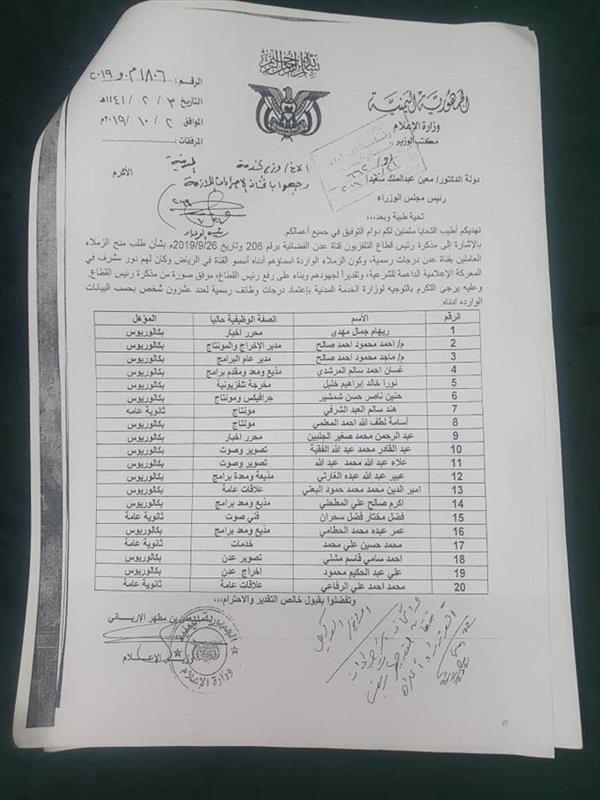 الجمهورية اليمنية
وزارة الإعلام
مكتب الوزير
الرقم: ١٨٠٦
التاريخ ٣ / ٢ / ١٤٤١هـ
الموافق ٢ / ١٠ / ٢٠١٩م
المرفقات:
دولة الدكتور/ معين عبدالملك سعيد الأكرم
رئيس مجلس الوزراء
تحية طيبة وبعد،،،
نهديكم أطيب التحايا متمنين لكم دوام التوفيق في جميع أعمالكم.
بالإشارة إلى مذكرة رئيس قطاع التلفزيون قناة عدن الفضائية برقم 206 وتاريخ 2019/9/26م بشأن طلب منح الزملاء
العاملين بقناة عدن درجات رسمية، وكون الزملاء الواردة اسماؤهم أدناه أسسو القناة في الرياض وكان لهم دور مشرف في
المعركة الإعلامية الداعمة للشرعية، وتقديراً لجهودهم وبناء على رفع رئيس القطاع، مرفق صورة من مذكرة رئيس القطاع.
وعليه يرجى التكرم بالتوجيه لوزارة الخدمة المدنية بإعتماد درجات وظائف رسمية لعدد عشرون شخص بحسب البيانات
الوارده ادناه
الرقم الأسم الصفة الوظيفية حالياً المؤهل
1 ريهام جمال مهدي محرر اخبار بكالوريوس
2 م/ احمد محمود احمد صالح مدير الإخراج والمونتاج بكالوريوس
3 م/ ماجد محمود احمد صالح مدير عام البرامج بكالوريوس
4 غسان احمد سالم المرشدي مذيع ومعد ومقدم برامج بكالوريوس
5 نورا خالد إبراهيم خليل مخرجة تلفزيونية بكالوريوس
6 حنين ناصر حسن شمشير جرافيكس ومونتاج بكالوريوس
7 هند سالم العبد الشرفي مونتاج ثانوية عامه
8 أسامة لطف الله احمد المعلمي مونتاج بكالوريوس
9 عبد الرحمن محمد صغير الجلبين محرر اخبار بكالوريوس
10 عبد القادر محمد عبد الله الفقية تصوير وصوت بكالوريوس
11 علاء عبد الله محمد عبد الله تصوير وصوت بكالوريوس
12 عبير عبد الله عبده الغارتي مذيعة ومعدة برامج بكالوريوس
13 امير الدين محمد محمد حمود البعني علاقات عامة بكالوريوس
14 اكرم صالح علي المطحني مذيع ومعد برامج بكالوريوس
15 فضل مختار فضل سحران فني صوت ثانوية عامة
16 عمر عبده محمد الحطامي مذيع ومعد برامج بكالوريوس
17 محمد حسين علي محمد خدمات ثانوية عامة
18 احمد سامي قاسم مشلي تصوير عدن بكالوريوس
19 علي عبد الحكيم محمود اخراج عدن بكالوريوس
20 محمد احمد علي الرفاعي علاقات عامة ثانوية عامة
وتفضلوا بقبول خالص التقدير والاحترام،،،
بن مطهر الإرياني
وزير الإعلام